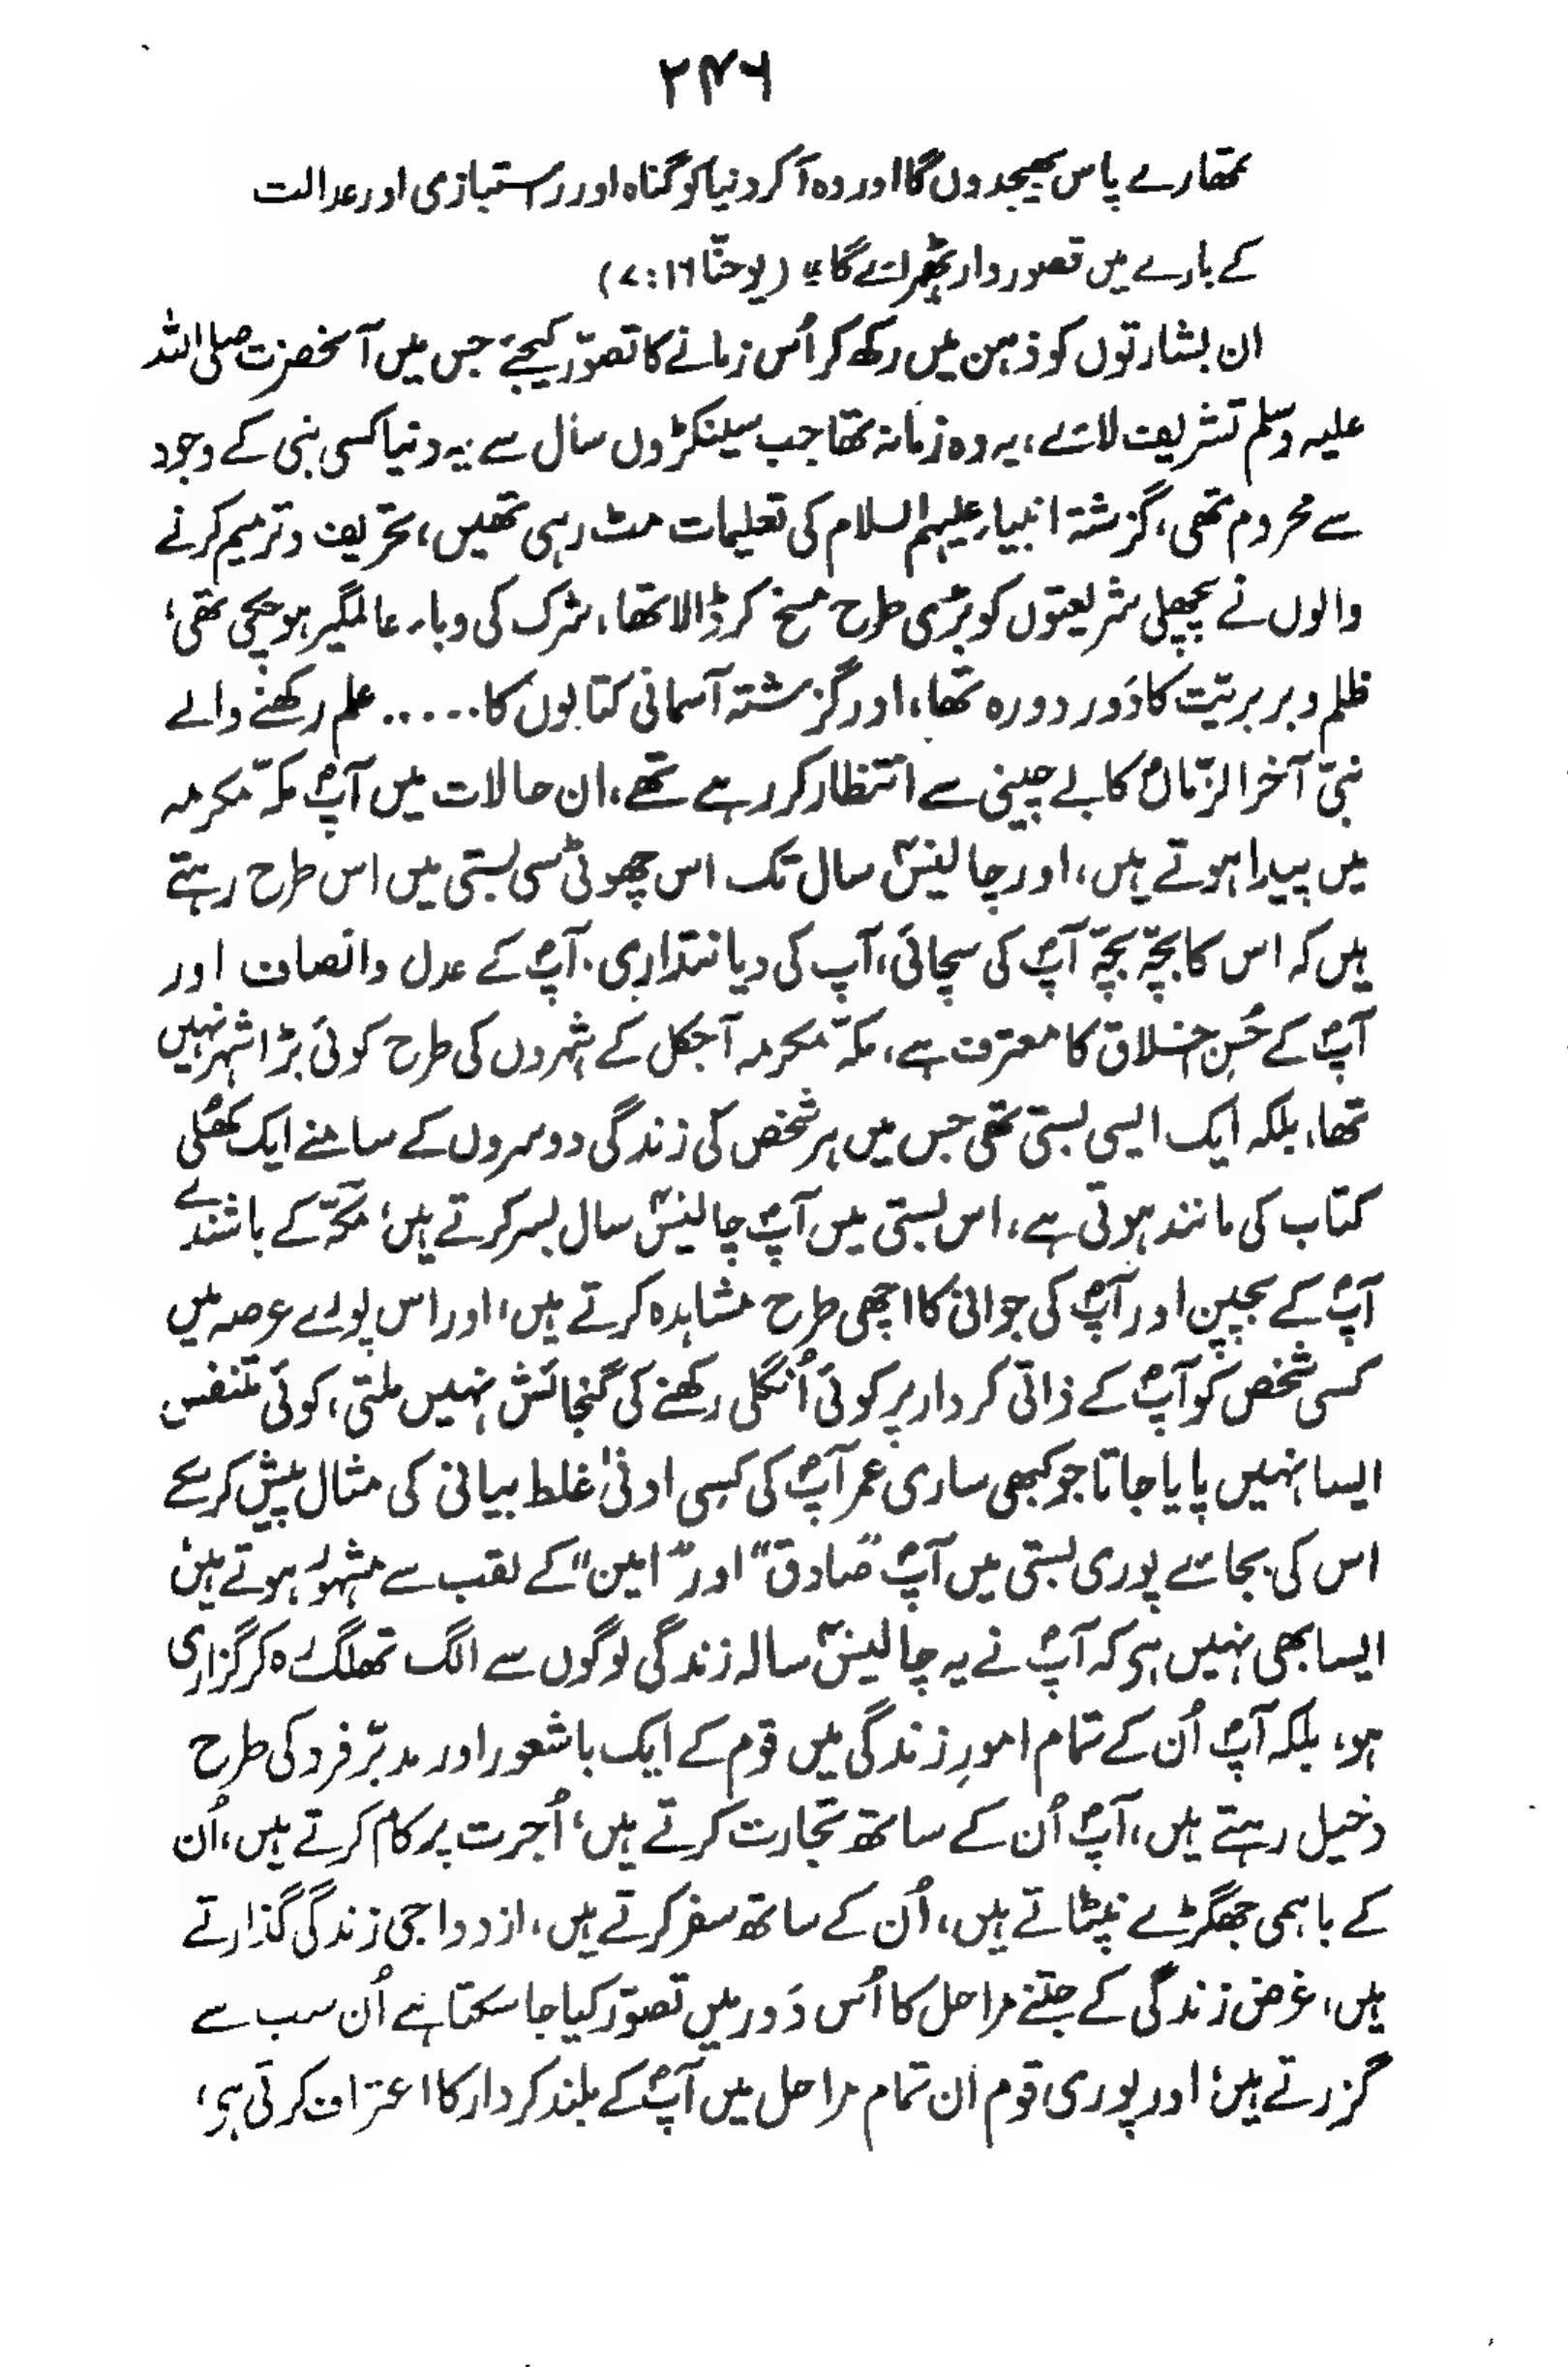 ۲۴۶
تمھارے پاس بھیجدوں گا اور وہ آکر دنیا کو گناہ اور راستبازی اور عدالت
کے بارے میں قصور وار ٹھہرائے گا ‎" (یوحنّا ۱۶ : ۷)
ان بشارتوں کو ذہن میں رکھ کر اُس زمانے کا تصوّر کیجئے جس میں آنحضرت صلی اللہ
علیہ وسلم تشریف لائے، یہ وہ زمانہ تھا جب سینکڑوں سال سے یہ دنیا کسی نبی کے وجود
سے محروم تھی، گزشتہ انبیاء علیہم السلام کی تعلیمات مٹ رہی تھیں، تحریف و ترمیم کرنے
والوں نے پچھلی شریعتوں کو بڑی طرح مسخ کر ڈالا تھا، شرک کی وباء عالمگیر ہو چکی تھی،
ظلم و بربریّت کا دَور دورہ تھا، اور گزشتہ آسمانی کتابوں کا ..... علم رکھنے والے
نبیّ آخر الزّماںؐ کا بے چینی سے انتظار کر رہے تھے، ان حالات میں آپؐ مکّہ مکرمہ
میں پیدا ہوتے ہیں، اور چالیسؔ سال تک اس چھوٹی سی بستی میں اس طرح رہتے
ہیں کہ اس کا بچّہ بچّہ آپؐ کی سچائی، آپ کی دیانتداری، آپؐ کے عدل و انصاف اور
آپؐ کے حُسنِ اخلاق کا معترف ہے، مکّہ مکرمہ آجکل کے شہروں کی طرح کوئی بڑا شہر نہیں
تھا، بلکہ ایک ایسی بستی تھی جس میں ہر شخص کی زندگی دوسروں کے سامنے ایک کھُلی
کتاب کی مانند ہوتی ہے، اس بستی میں آپؐ چالیسؔ سال بسر کرتے ہیں، مکّہ کے باشندے
آپؐ کے بچپن اور آپؐ کی جوانی کا اچھی طرح مشاہدہ کرتے ہیں، اور اس پورے عرصہ میں
کسی شخص کو آپؐ کے ذاتی کردار پر کوئی اُنگلی رکھنے کی گنجائش نہیں ملتی، کوئی متنفس
ایسا نہیں پایا جاتا جو کبھی ساری عمر آپؐ کی کسی ادنیٰ غلط بیانی کی مثال پیش کرسکے
اس کی بجائے پوری بستی میں آپؐ "صادق" اور "امین" کے لقب سے مشہور ہوتے ہیں،
ایسا بھی نہیں ہی کہ آپؐ نے یہ چالیسؔ سالہ زندگی لوگوں سے الگ تھلگ رہ کر گزاری
ہو، بلکہ آپؐ اُن کے تمام امورِ زندگی میں قوم کے ایک باشعور اور مدبّر فرد کی طرح
دخیل رہتے ہیں، آپؐ اُن کے ساتھ تجارت کرتے ہیں، اُجرت پر کام کرتے ہیں، اُن
کے باہمی جھگڑے نپٹاتے ہیں، اُن کے ساتھ سفر کرتے ہیں، ازدواجی زندگی گذارتے
ہیں، غرض زندگی کے جتنے مراحل کا اُس دَور میں تصوّر کیا جا سکتا ہے اُن سب سے
گزرتے ہیں، اور پوری قوم ان تمام مراحل میں آپؐ کے بلند کردار کا اعتراف کرتی ہی،